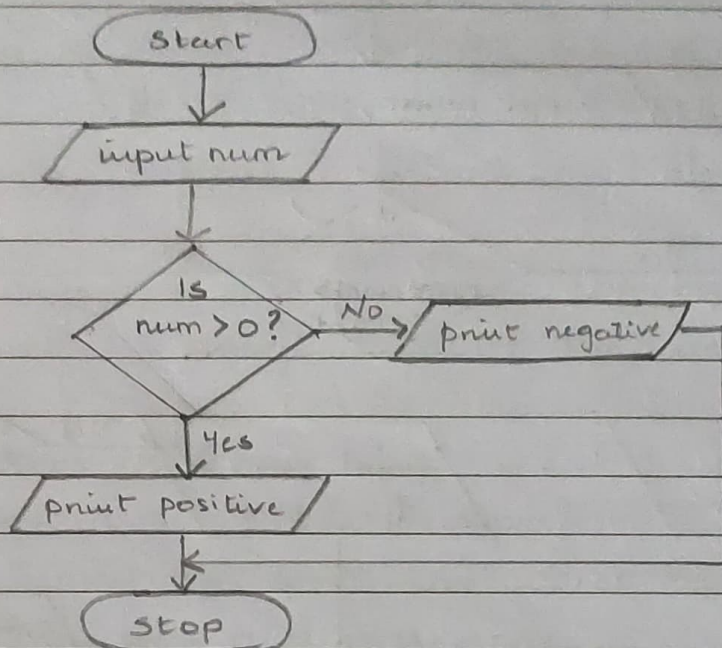 Start
input num
Is
num > 0?
No
print negative
Yes
print positive
stop